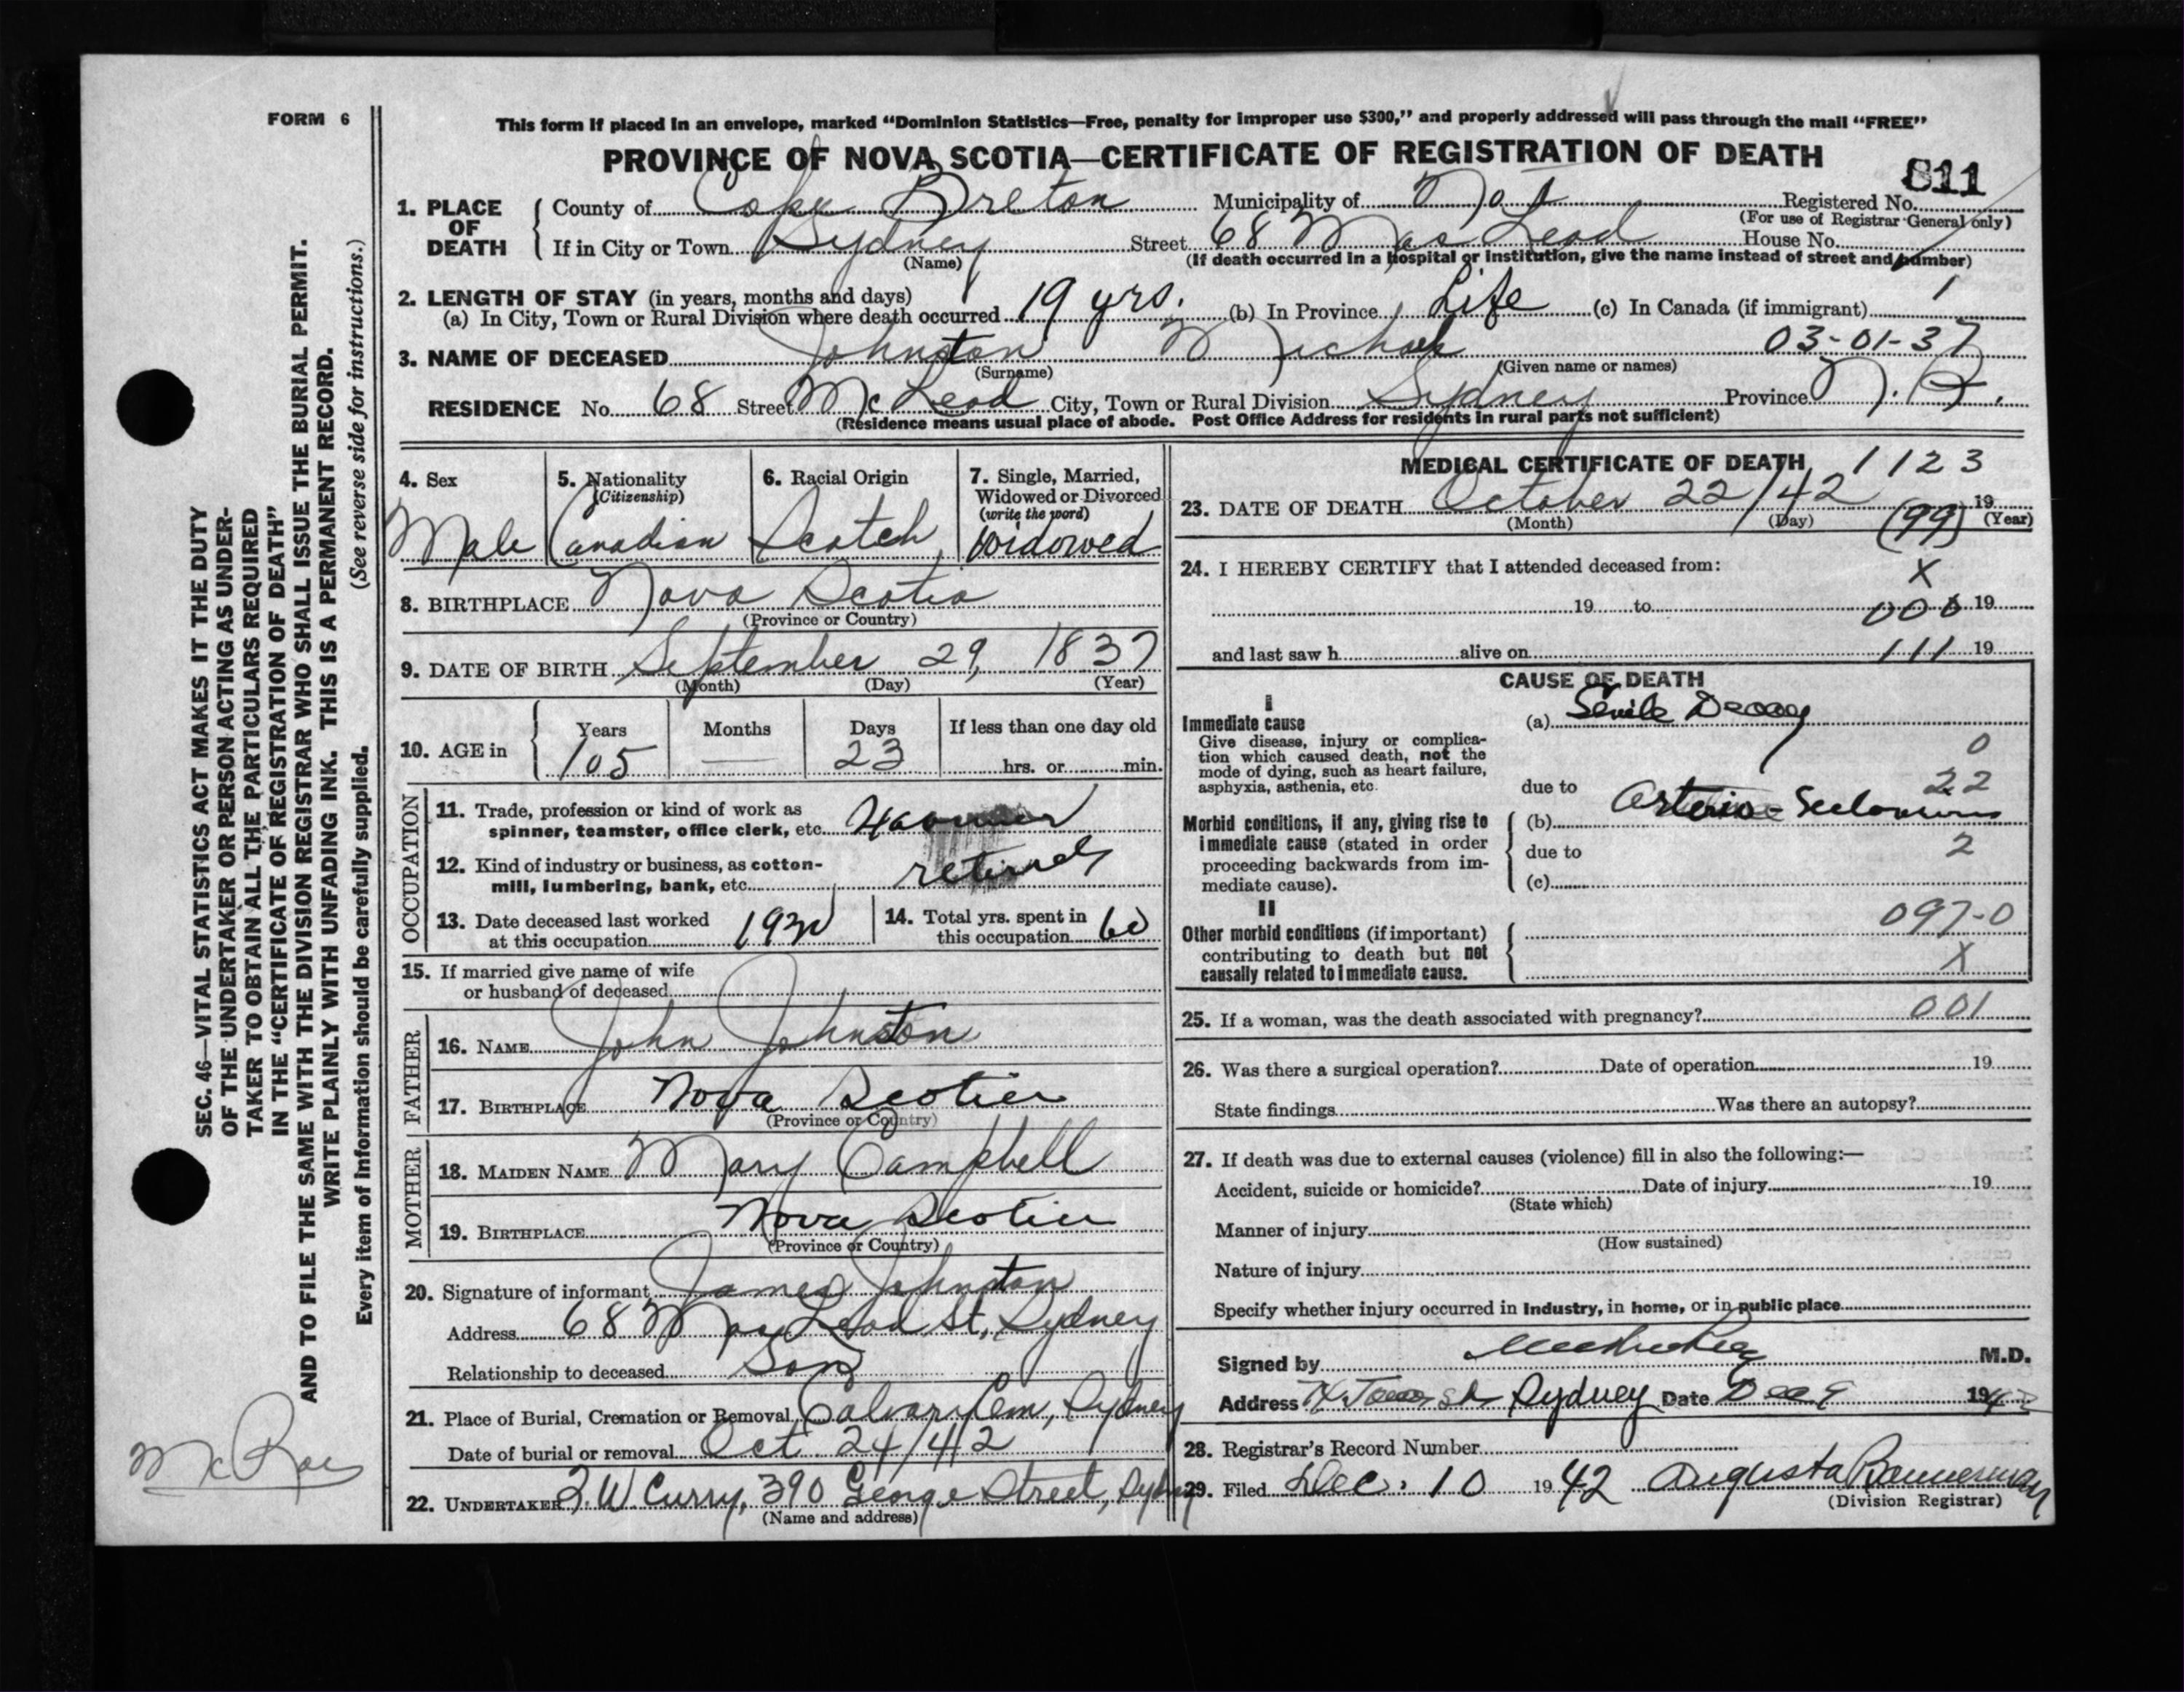 FORM 6
This form if placed in an envelope, marked “Dominion Statistics—Free, penalty for improper use $300,” and properly addressed will pass through the mail “FREE”
PROVINCE OF NOVA SCOTIA—CERTIFICATE OF REGISTRATION OF DEATH
811
1. PLACE OF DEATH
County of Cape Breton Municipality of Registered No.
(For use of Registrar General only)
If in City or Town Sydney Street 68 Mac Leod House No.
(Name) (If death occurred in a hospital or institution, give the name instead of street and number)
2. LENGTH OF STAY (in years, months and days)
(a) In City, Town or Rural Division where death occurred 19 yrs. (b) In Province Life (c) In Canada (if immigrant) 1
03-01-37
3. NAME OF DECEASED Johnston Michael
(Surname) (Given name or names)
RESIDENCE No. 68 Street Mc Leod City, Town or Rural Division Sydney Province N.B.
(Residence means usual place of abode. Post Office Address for residents in rural parts not sufficient)
4. Sex
Male
5. Nationality
(Citizenship)
Canadian
6. Racial Origin
Scotch
7. Single, Married,
Widowed or Divorced
(write the word)
Widowed
8. BIRTHPLACE Nova Scotia
(Province or Country)
9. DATE OF BIRTH September 29, 1837
(Month) (Day) (Year)
10. AGE in
Years Months Days If less than one day old
105 — 23 hrs. or min.
OCCUPATION
11. Trade, profession or kind of work as
spinner, teamster, office clerk, etc.
12. Kind of industry or business, as cotton-
mill, lumbering, bank, etc. retired
13. Date deceased last worked
at this occupation
14. Total yrs. spent in
this occupation 60
15. If married give name of wife
or husband of deceased
FATHER
16. NAME John Johnston
17. BIRTHPLACE Nova Scotia
(Province or Country)
MOTHER
18. MAIDEN NAME Mary Campbell
19. BIRTHPLACE Nova Scotia
(Province or Country)
20. Signature of informant James Johnston
Address 68 Mac Leod St, Sydney
Relationship to deceased Son
21. Place of Burial, Cremation or Removal Calvary Cem, Sydney
Date of burial or removal Oct 24/42
22. UNDERTAKER W Curry, 390 George Street, Sydney
(Name and address)
MEDICAL CERTIFICATE OF DEATH 1123
23. DATE OF DEATH October 22/42 19
(Month) (Day) (99) (Year)
24. I HEREBY CERTIFY that I attended deceased from: X
19 to 000 19
and last saw h alive on 111 19
CAUSE OF DEATH
I
Immediate cause
Give disease, injury or complica-
tion which caused death, not the
mode of dying, such as heart failure,
asphyxia, asthenia, etc.
(a) Senile Decay
0
due to 22
Morbid conditions, if any, giving rise to
immediate cause (stated in order
proceeding backwards from im-
mediate cause).
(b) Arterio-
due to 2
(c)
II
Other morbid conditions (if important)
contributing to death but not
causally related to immediate cause.
097-0
X
25. If a woman, was the death associated with pregnancy? 001
26. Was there a surgical operation? Date of operation 19
State findings Was there an autopsy?
27. If death was due to external causes (violence) fill in also the following:—
Accident, suicide or homicide? Date of injury 19
(State which)
Manner of injury
(How sustained)
Nature of injury
Specify whether injury occurred in Industry, in home, or in public place
Signed by M.D.
Address Sydney Date Dec 9 1942
28. Registrar's Record Number
29. Filed Dec. 10 1942 Augusta Bannerman
(Division Registrar)
SEC. 46—VITAL STATISTICS ACT MAKES IT THE DUTY
OF THE UNDERTAKER OR PERSON ACTING AS UNDER-
TAKER TO OBTAIN ALL THE PARTICULARS REQUIRED
IN THE “CERTIFICATE OF REGISTRATION OF DEATH”
AND TO FILE THE SAME WITH THE DIVISION REGISTRAR WHO SHALL ISSUE THE BURIAL PERMIT.
WRITE PLAINLY WITH UNFADING INK. THIS IS A PERMANENT RECORD.
Every item of information should be carefully supplied. (See reverse side for instructions.)